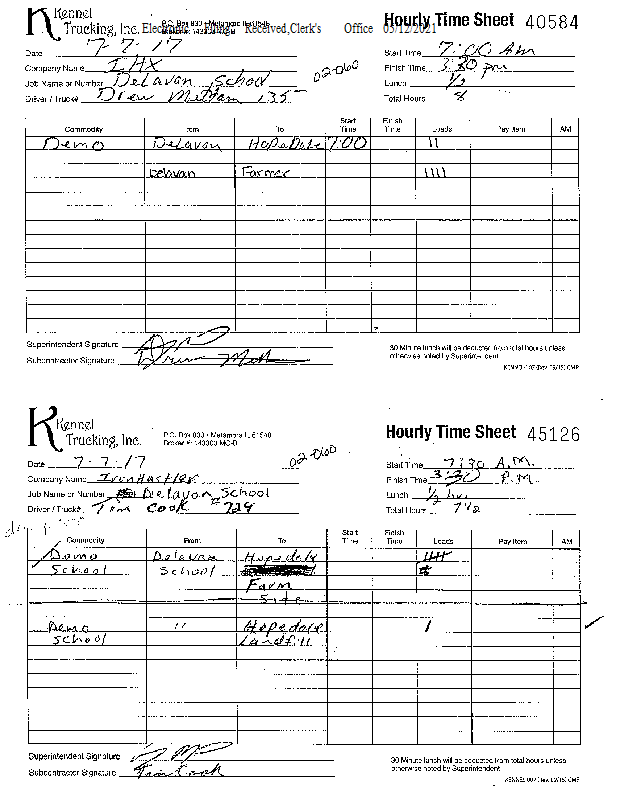 Kennel
Trucking, Inc.
P.O. Box 830 • Metamora IL 61548
Received, Clerk's Office 05/12/2021
Hourly Time Sheet 40584
Date 7-7-17
Start Time 7:00 Am
Company Name IHX
02-060
Finish Time 3:30 pm
Job Name or Number Delavan School
Lunch 1/2
Driver / Truck# Drew 135
Total Hours 8
Commodity From To Start Time Finish Time Loads Pay Item AM
Demo Delavan HopeDale 7:00 II
Delavan Farmer IIII
Superintendent Signature
Subcontractor Signature
30 Minute lunch will be deducted from total hours unless
otherwise noted by Superintendent
Kennel
Trucking, Inc.
P.O. Box 830 • Metamora IL 61548
Hourly Time Sheet 45126
Date 7-7-17
02-060
Start Time 7:30 A.M.
Company Name
Finish Time 3:30 P.M.
Job Name or Number Delavan School
Lunch 1/2 hr.
Driver / Truck# Tom Cook # 724
Total Hours 7 1/2
Commodity From To Start Time Finish Time Loads Pay Item AM
Demo Delavan Hopedale
School School
Farm
Site
Demo " Hopedale I
School Landfill
Superintendent Signature
Subcontractor Signature Tom Cook
30 Minute lunch will be deducted from total hours unless
otherwise noted by Superintendent